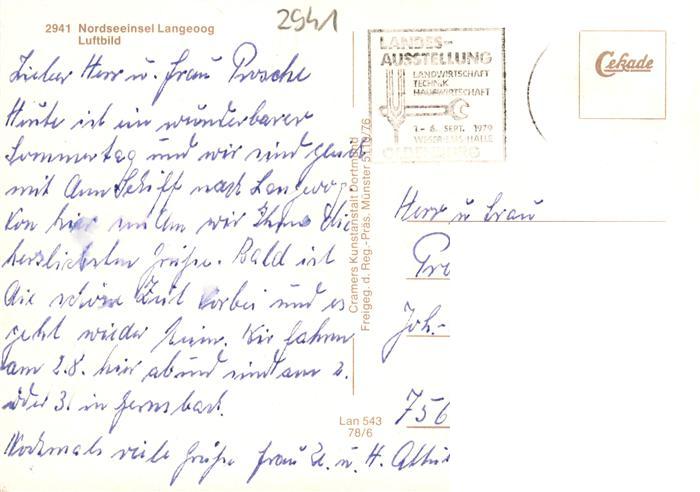 2941 Nordseeinsel Langeoog
Luftbild
2941
LANDES-
AUSSTELLUNG
LANDWIRTSCHAFT
TECHNIK
HAUSWIRTSCHAFT
1.-6. SEPT. 1979
WESER-EMS-HALLE
OLDENBURG
Cekade
Lieber Herr u. Frau Prosche
Heute ist ein wunderbarer
Sommertag und wir sind
mit dem Schiff nach Langeoog.
Von hier wir Ihnen die
herzlichsten Grüße. Bald ist
die schöne Zeit vorbei und es
geht wieder heim. Wir fahren
am 2.8. hier ab und sind am 2.
oder 3. in Gernsbach.
Nochmals viele Grüße Frau u. H.
Cramers Kunstanstalt Dortmund
Freigeg. d. Reg.-Präs. Münster 5119/76
Lan 543
78/6
Herr u Frau
Pro
Joh.-
756